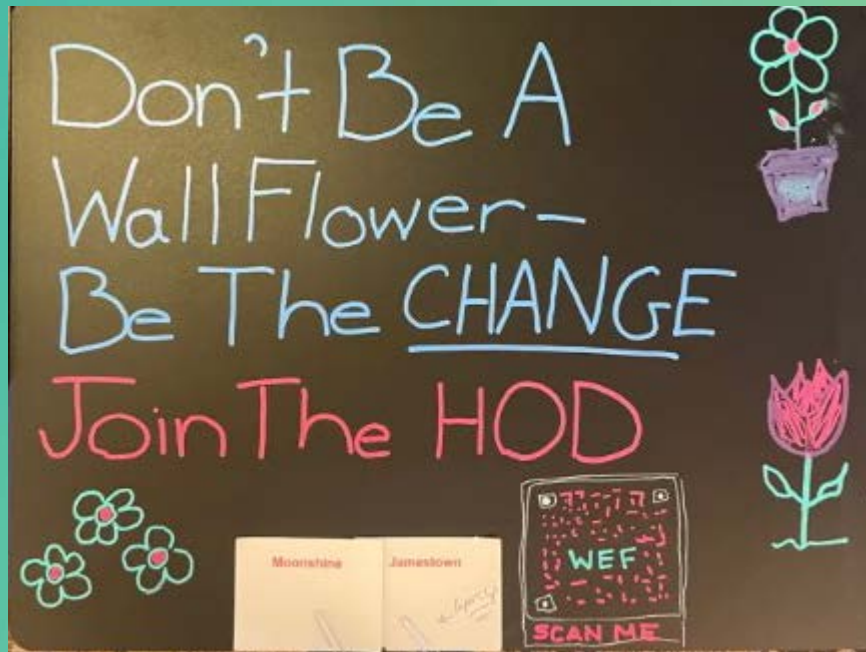 Don't Be A
Wall Flower-
Be The CHANGE
Join The HOD
Moonshine
Jamestown
WEF
SCAN ME